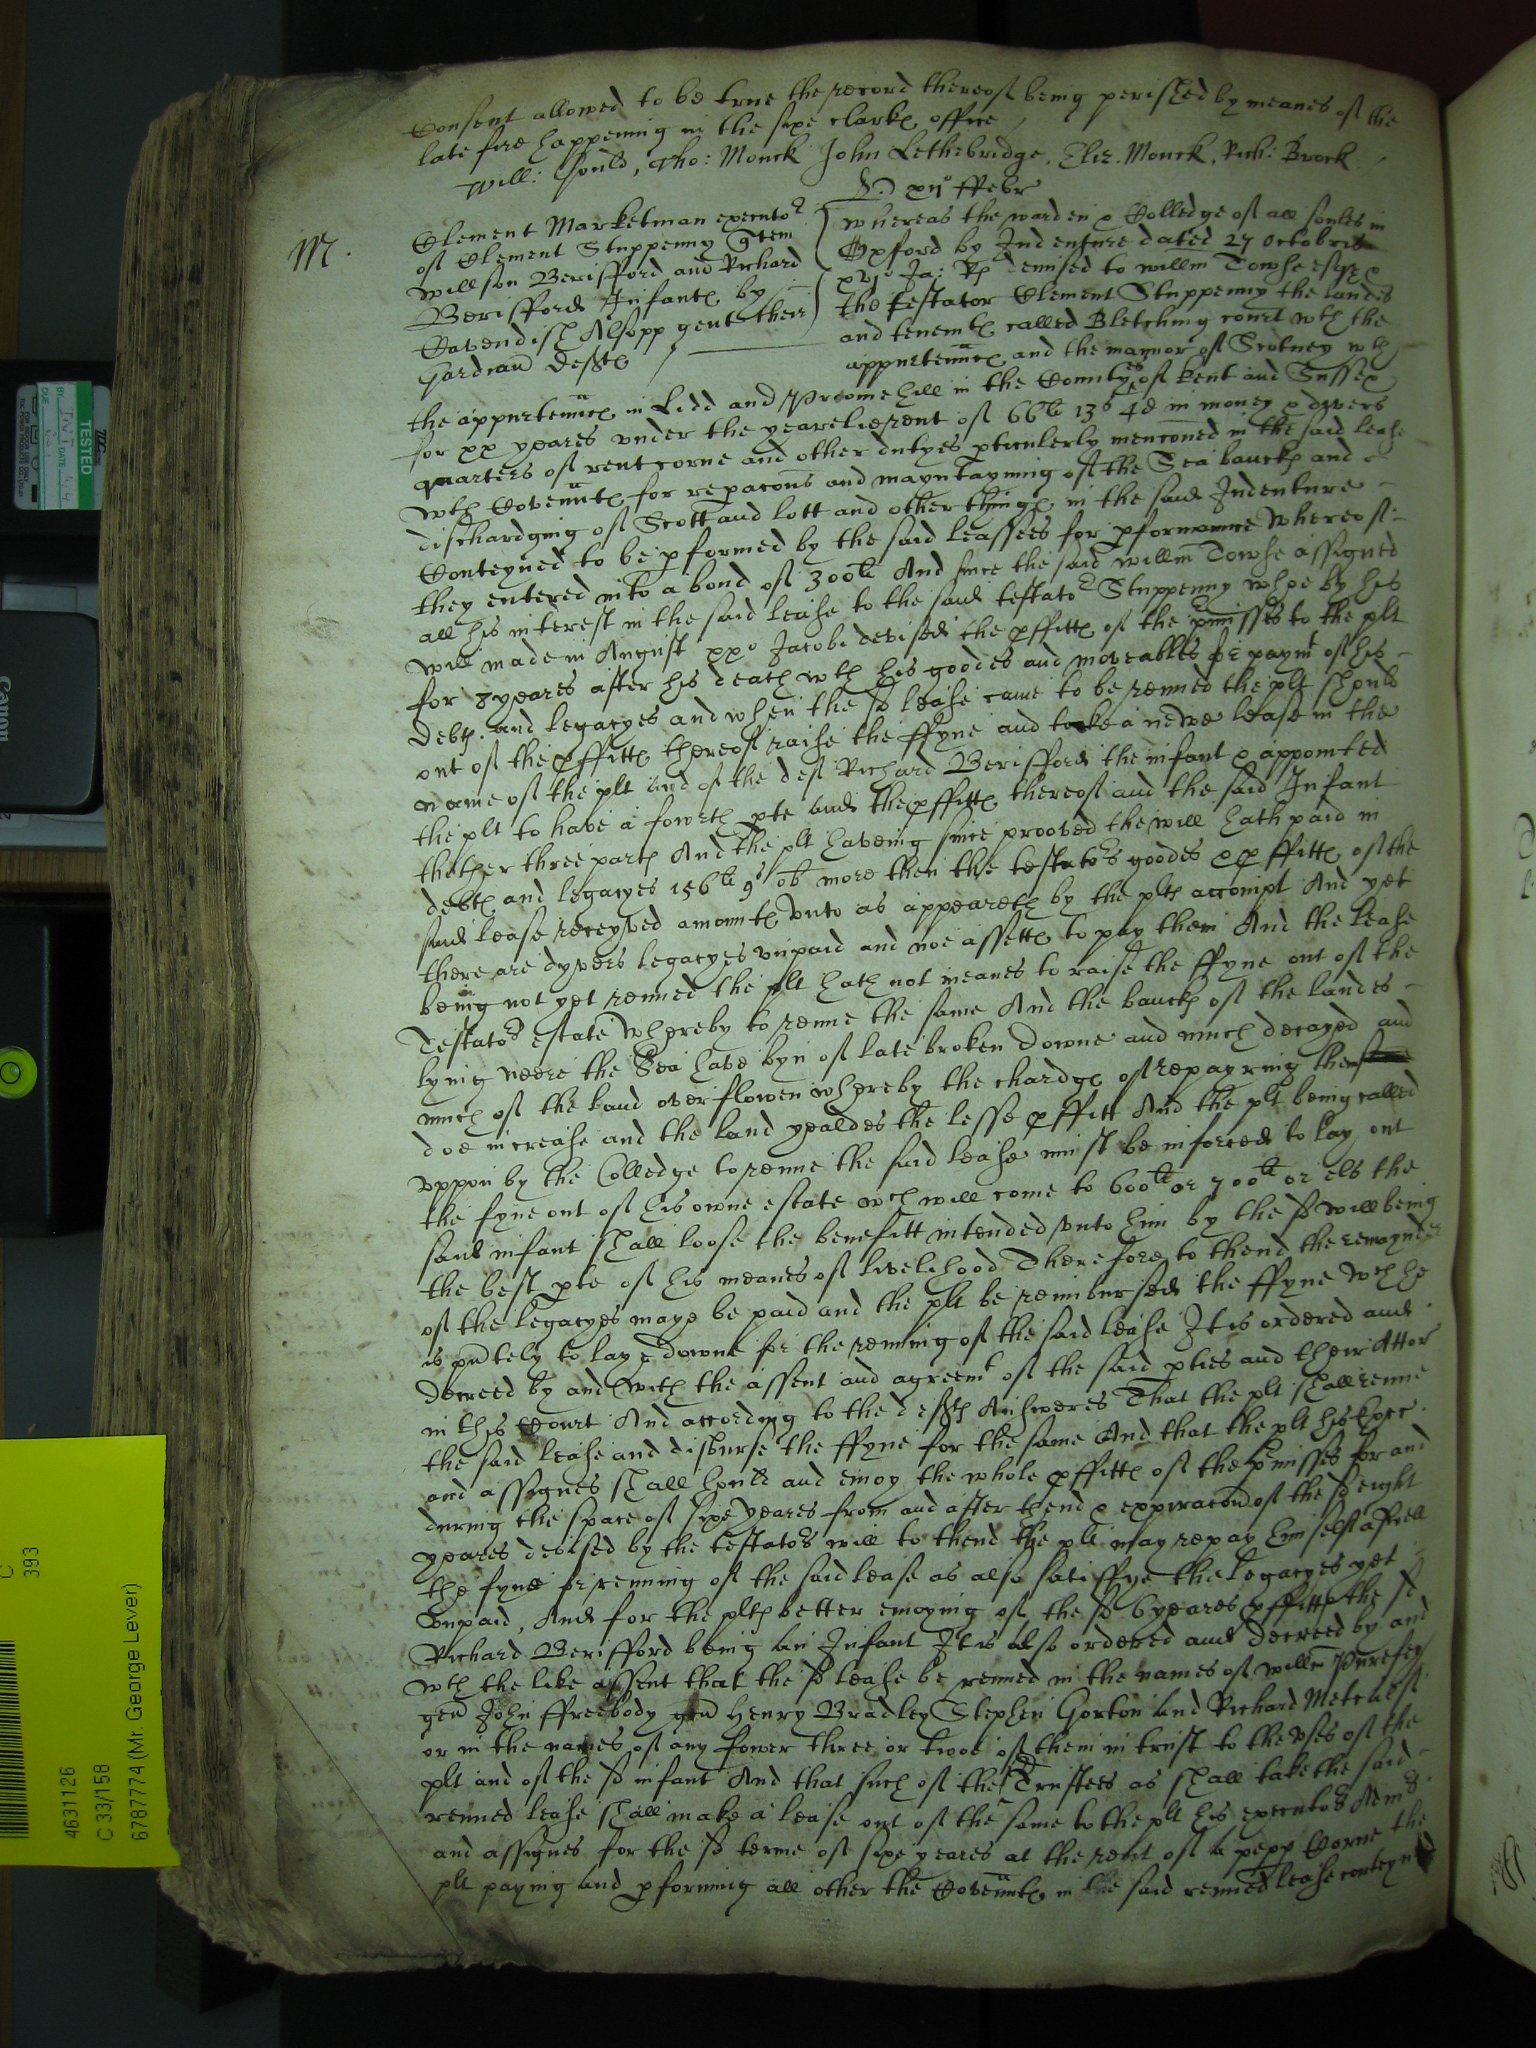 Consent allowed to be true the record thereof being perished by meanes of the
late fire happening in the sixe clarkes office
Will: Gould, Tho: Monck John Lethebridge, Eliz. Monck, Rich: Brock
xijo ffebr
M.
Clement Marketman executor
of Clement Stuppenny
Willson Berifford and Richard
Berifford Infantes by
Cavendish Alsopp gent their
Gardian Deftes
Whereas the warden & Colledge of all soules in
Oxford by Indenture dated 27 Octobris
xvjo Ja: Rs demised to willm Towse esqr &
the testator Clement Stuppenny the landes
and tenemtes called Bletching court wth the
appurtennces and the mannor of Scotney wth
the appurtennces in Lidd and Promehill in the Countyes of Kent and Sussex
for xx yeares under the yearelie rent of 66li 13s 4d in money & divers
quarters of rent corne and other dutyes pticulerly menconed in the said lease
wth Covennts for repacons and mayntayning of the Sea banckes and
dischardging of Scott and lott and other thinges in the said Indenture
Conteyned to be pformed by the said leassees for pformance whereof
they entered into a bond of 300li And since the said willm Towse assigned
all his interest in the said lease to the said testator Stuppenny whoe by his
will made in August xxo Jacobi devised the pffittes of the pmisses to the plt
for 8 yeares after his death wth his goodes and moveables for paymt of his
debts and legacyes and when the sd lease came to be renued the plt should
out of the pffittes thereof raise the ffyne and take a newe lease in the
name of the plt and of the deft Richard Berifford the infant & appointed
the plt to have a fowrth pte and the pffittes thereof and the said Infant
thother three partes And the plt haveing since prooved the will hath paid in
debtes and legacyes 156li 9s ob more then the testators goodes & pffittes of the
said lease receyved amountes unto as appeareth by the pltes accompt And yet
there are dyvers legacyes unpaid and noe assettes to pay them And the lease
being not yet renued the plt hath not meanes to raise the ffyne out of the
Testators estate whereby to renue the same And the banckes of the landes
lying neere the Sea have byn of late broken downe and much decayed and
much of the land overflowen whereby the chardges of repayring them
doe increase and the land yealdes the lesse pffitt And the plt being called
uppon by the Colledge to renue the said lease must be inforced to lay out
the fyne out of his owne estate wch will come to 600li or 700li or els the
said infant shall loose the benefitt intended unto him by the sd will being
the best pte of his meanes of livelihood Therefore to thend the remaynder
of the legacyes maye be paid and the plt be reimbursed the ffyne wch he
is pntely to laye downe for the renuing of the said lease It is ordered and
decreed by and with the assent and agreemt of the said pties and their Attor
in this Court And according to the deftes Answeres That the plt shall renue
the said lease and disburse the ffyne for the same And that the plt his Exec
and assignes shall hould and enioy the whole pffittes of the pmisses for and
during the space of sixe yeares from and after thend & expiracon of the sd eight
yeares devised by the testators will to thend the plt may repay himself aswell
the fyne for renuing of the said lease as also satisffye the legacyes yet
unpaid, And for the pltes better enioying of the sd 6 yeares pffittes the sd
Richard Berifford being an Infant It is also ordered and decreed by and
wth the like assent that the sd lease be renued in the names of willm Purefey
gen John ffreebody gen Henry Bradley Stephen Gorton and Richard Metcalf
or in the names of any fower three or twoe of them in trust to the uses of the
plt and of the sd infant And that such of the sd Trustees as shall take the said
renued lease shall make a lease out of the same to the plt his executors Admrs
and assignes for the sd terme of sixe yeares at the rent of a pepp Corne the
plt paying and pforming all other the Covennts in the said renued lease conteyned
TESTED
Canon
C
393
4631126
C 33/158
6787774 (Mr. George Lever)